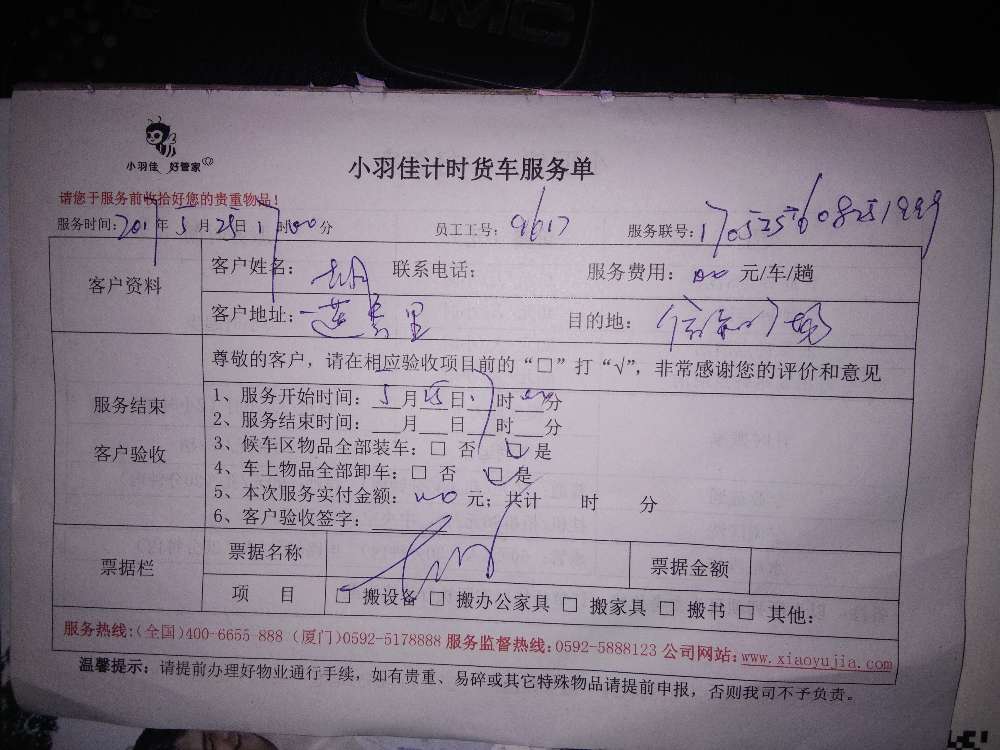 GMC
小羽佳 好管家
小羽佳计时货车服务单
请您于服务前收拾好您的贵重物品!
服务时间:2017年5月25日 时 分 员工工号:9617 服务联号:
客户资料
客户姓名: 联系电话: 服务费用: 元/车/趟
客户地址:莲秀里 目的地:
服务结束
客户验收
尊敬的客户，请在相应验收项目前的“□”打“√”，非常感谢您的评价和意见
1、服务开始时间:5月25日 时 分
2、服务结束时间:___月___日___时___分
3、候车区物品全部装车:□ 否 □ 是
4、车上物品全部卸车:□ 否 □ 是
5、本次服务实付金额: 元; 共计 时 分
6、客户验收签字:
票据栏
票据名称 票据金额
项 目 □ 搬设备 □ 搬办公家具 □ 搬家具 □ 搬书 □ 其他:
服务热线:(全国)400-6655-888 (厦门)0592-5178888 服务监督热线:0592-5888123 公司网站:www.xiaoyujia.com
温馨提示: 请提前办理好物业通行手续，如有贵重、易碎或其它特殊物品请提前申报，否则我司不予负责。